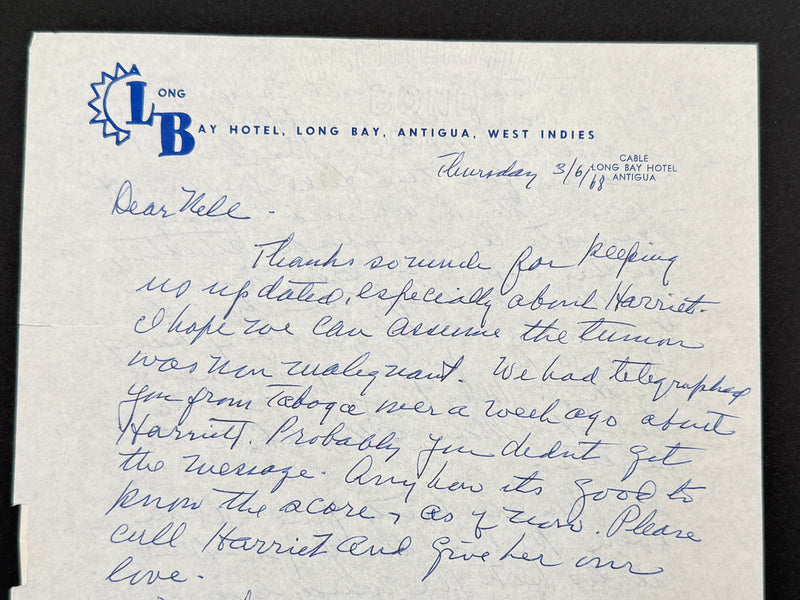 LONG
BAY HOTEL, LONG BAY, ANTIGUA, WEST INDIES
CABLE
LONG BAY HOTEL
ANTIGUA
Thursday 3/6/68
Dear Nell -
Thanks so much for keeping
us updated, especially about Harriet.
I hope we can assume the tumor
was non malegnant. We had telegraphed
you from Taboga over a week ago about
Harriett. Probably you didnt get
the message. Any how its good to
know the score, as of now. Please
call Harriet and give her our
love.